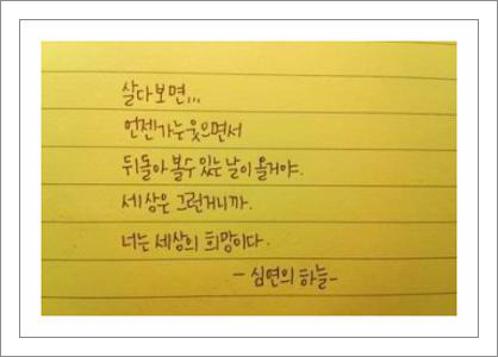 살다보면...
언젠가는 웃으면서
뒤돌아 볼수 있는 날이 올거야.
세상은 그런거니까.
너는 세상의 희망이다.
- 심연의 하늘 -